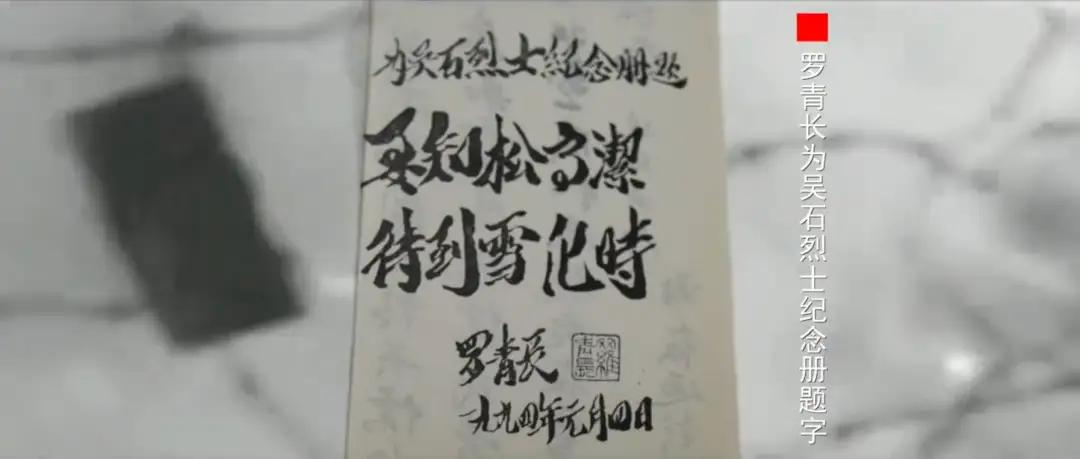 为吴石烈士纪念册题
要知松高潔
待到雪化時
罗青长
一九九四年元月四日
罗青长为吴石烈士纪念册题字